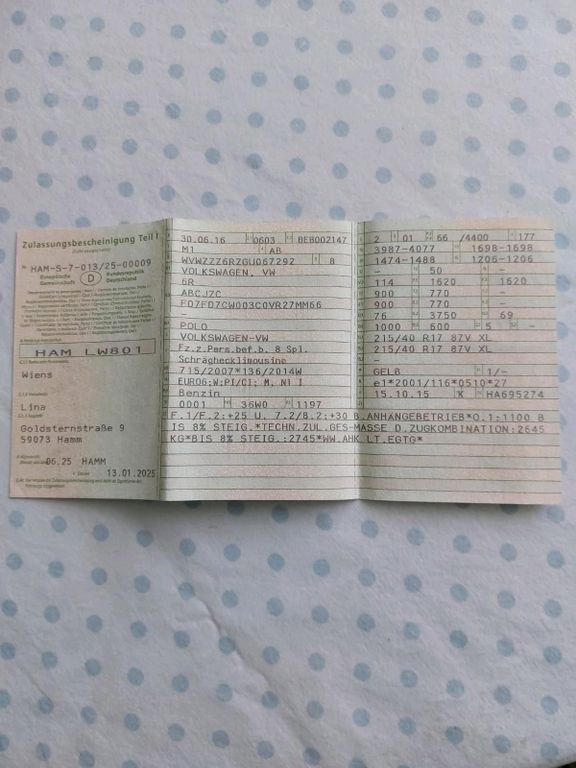 Zulassungsbescheinigung Teil I
(Fahrzeugschein)
HAM-S-7-013/25-00009
Europäische Gemeinschaft
D
Bundesrepublik Deutschland
HAM LW801
Wiens
Lina
Goldsternstraße 9
59073 Hamm
06.25 HAMM
13.01.2025
30.06.16 0603 BEB002147
M1 AB
WVWZZZ6RZGU067292 8
VOLKSWAGEN, VW
6R
ABCJZC
FD7FD7CW003C0VR27MM66
-
POLO
VOLKSWAGEN-VW
Fz.z.Pers.bef.b. 8 Spl.
Schräghecklimousine
715/2007*136/2014W
EURO6;W;PI/CI; M, N1 I
Benzin
0001 36W0 1197
2 01 66 /4400 177
3987-4077 1698-1698
1474-1488 1206-1206
- 50 -
114 1620 1620
900 770 -
900 770 -
76 3750 69
1000 600 5 -
215/40 R17 87V XL
215/40 R17 87V XL
-
GELB 1/-
e1*2001/116*0510*27
15.10.15 K HA695274
F.1/F.2:+25 U. 7.2/8.2:+30 B.ANHAENGEBETRIEB*O.1:1100 B
IS 8% STEIG.*TECHN.ZUL.GES-MASSE D.ZUGKOMBINATION:2645
KG*BIS 8% STEIG.:2745*WW.AHK.LT.EGTG*